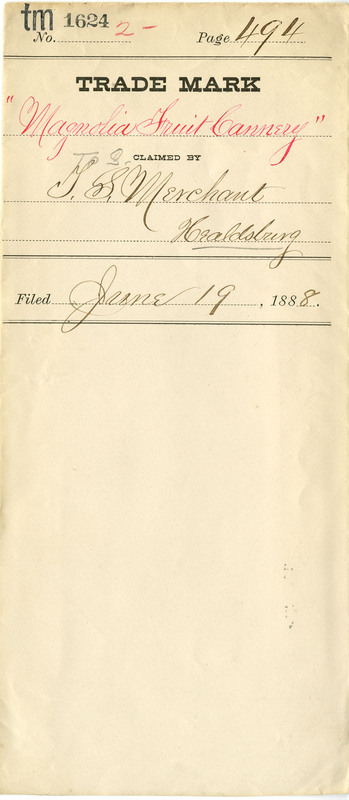 tm 1624
No. 2- Page 494
TRADE MARK
"Magnolia Fruit Cannery"
CLAIMED BY
T. S. Merchant
Healdsburg
Filed June 19, 1888.